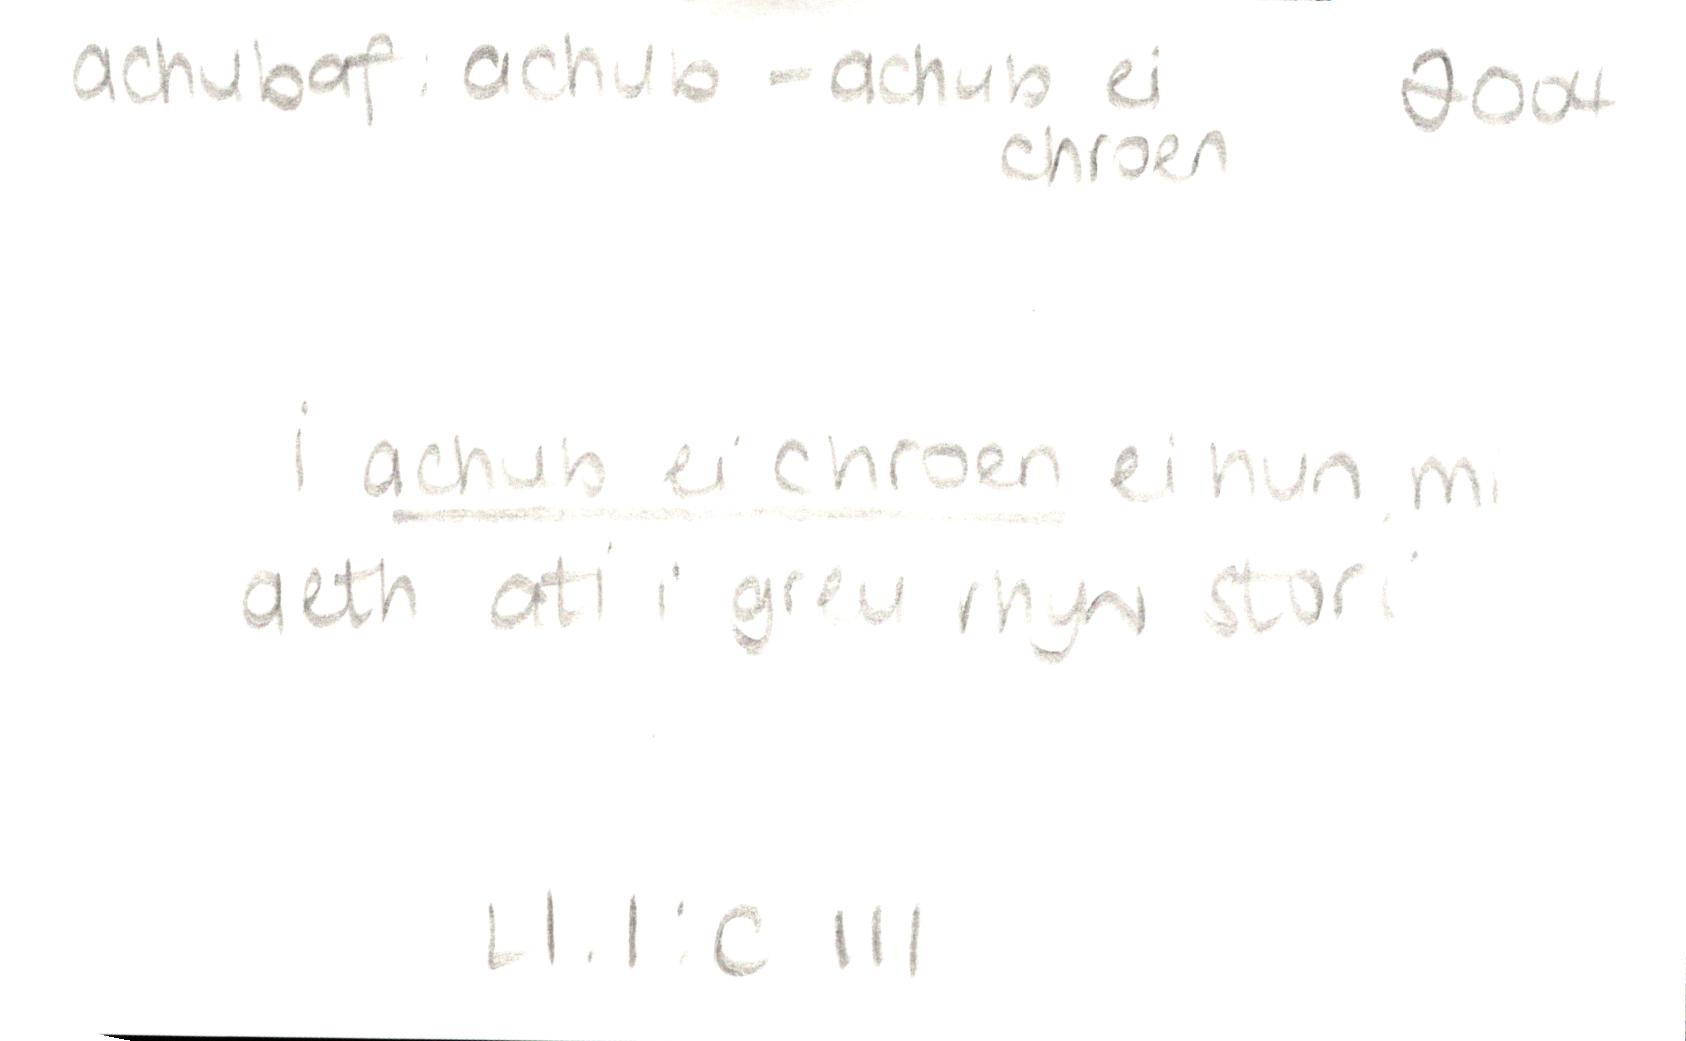 achubaf: achub - achub ei 2004
chroen
i achub ei chroen ei hun, mi
aeth ati i greu rhyw stori
Ll.1:C 111